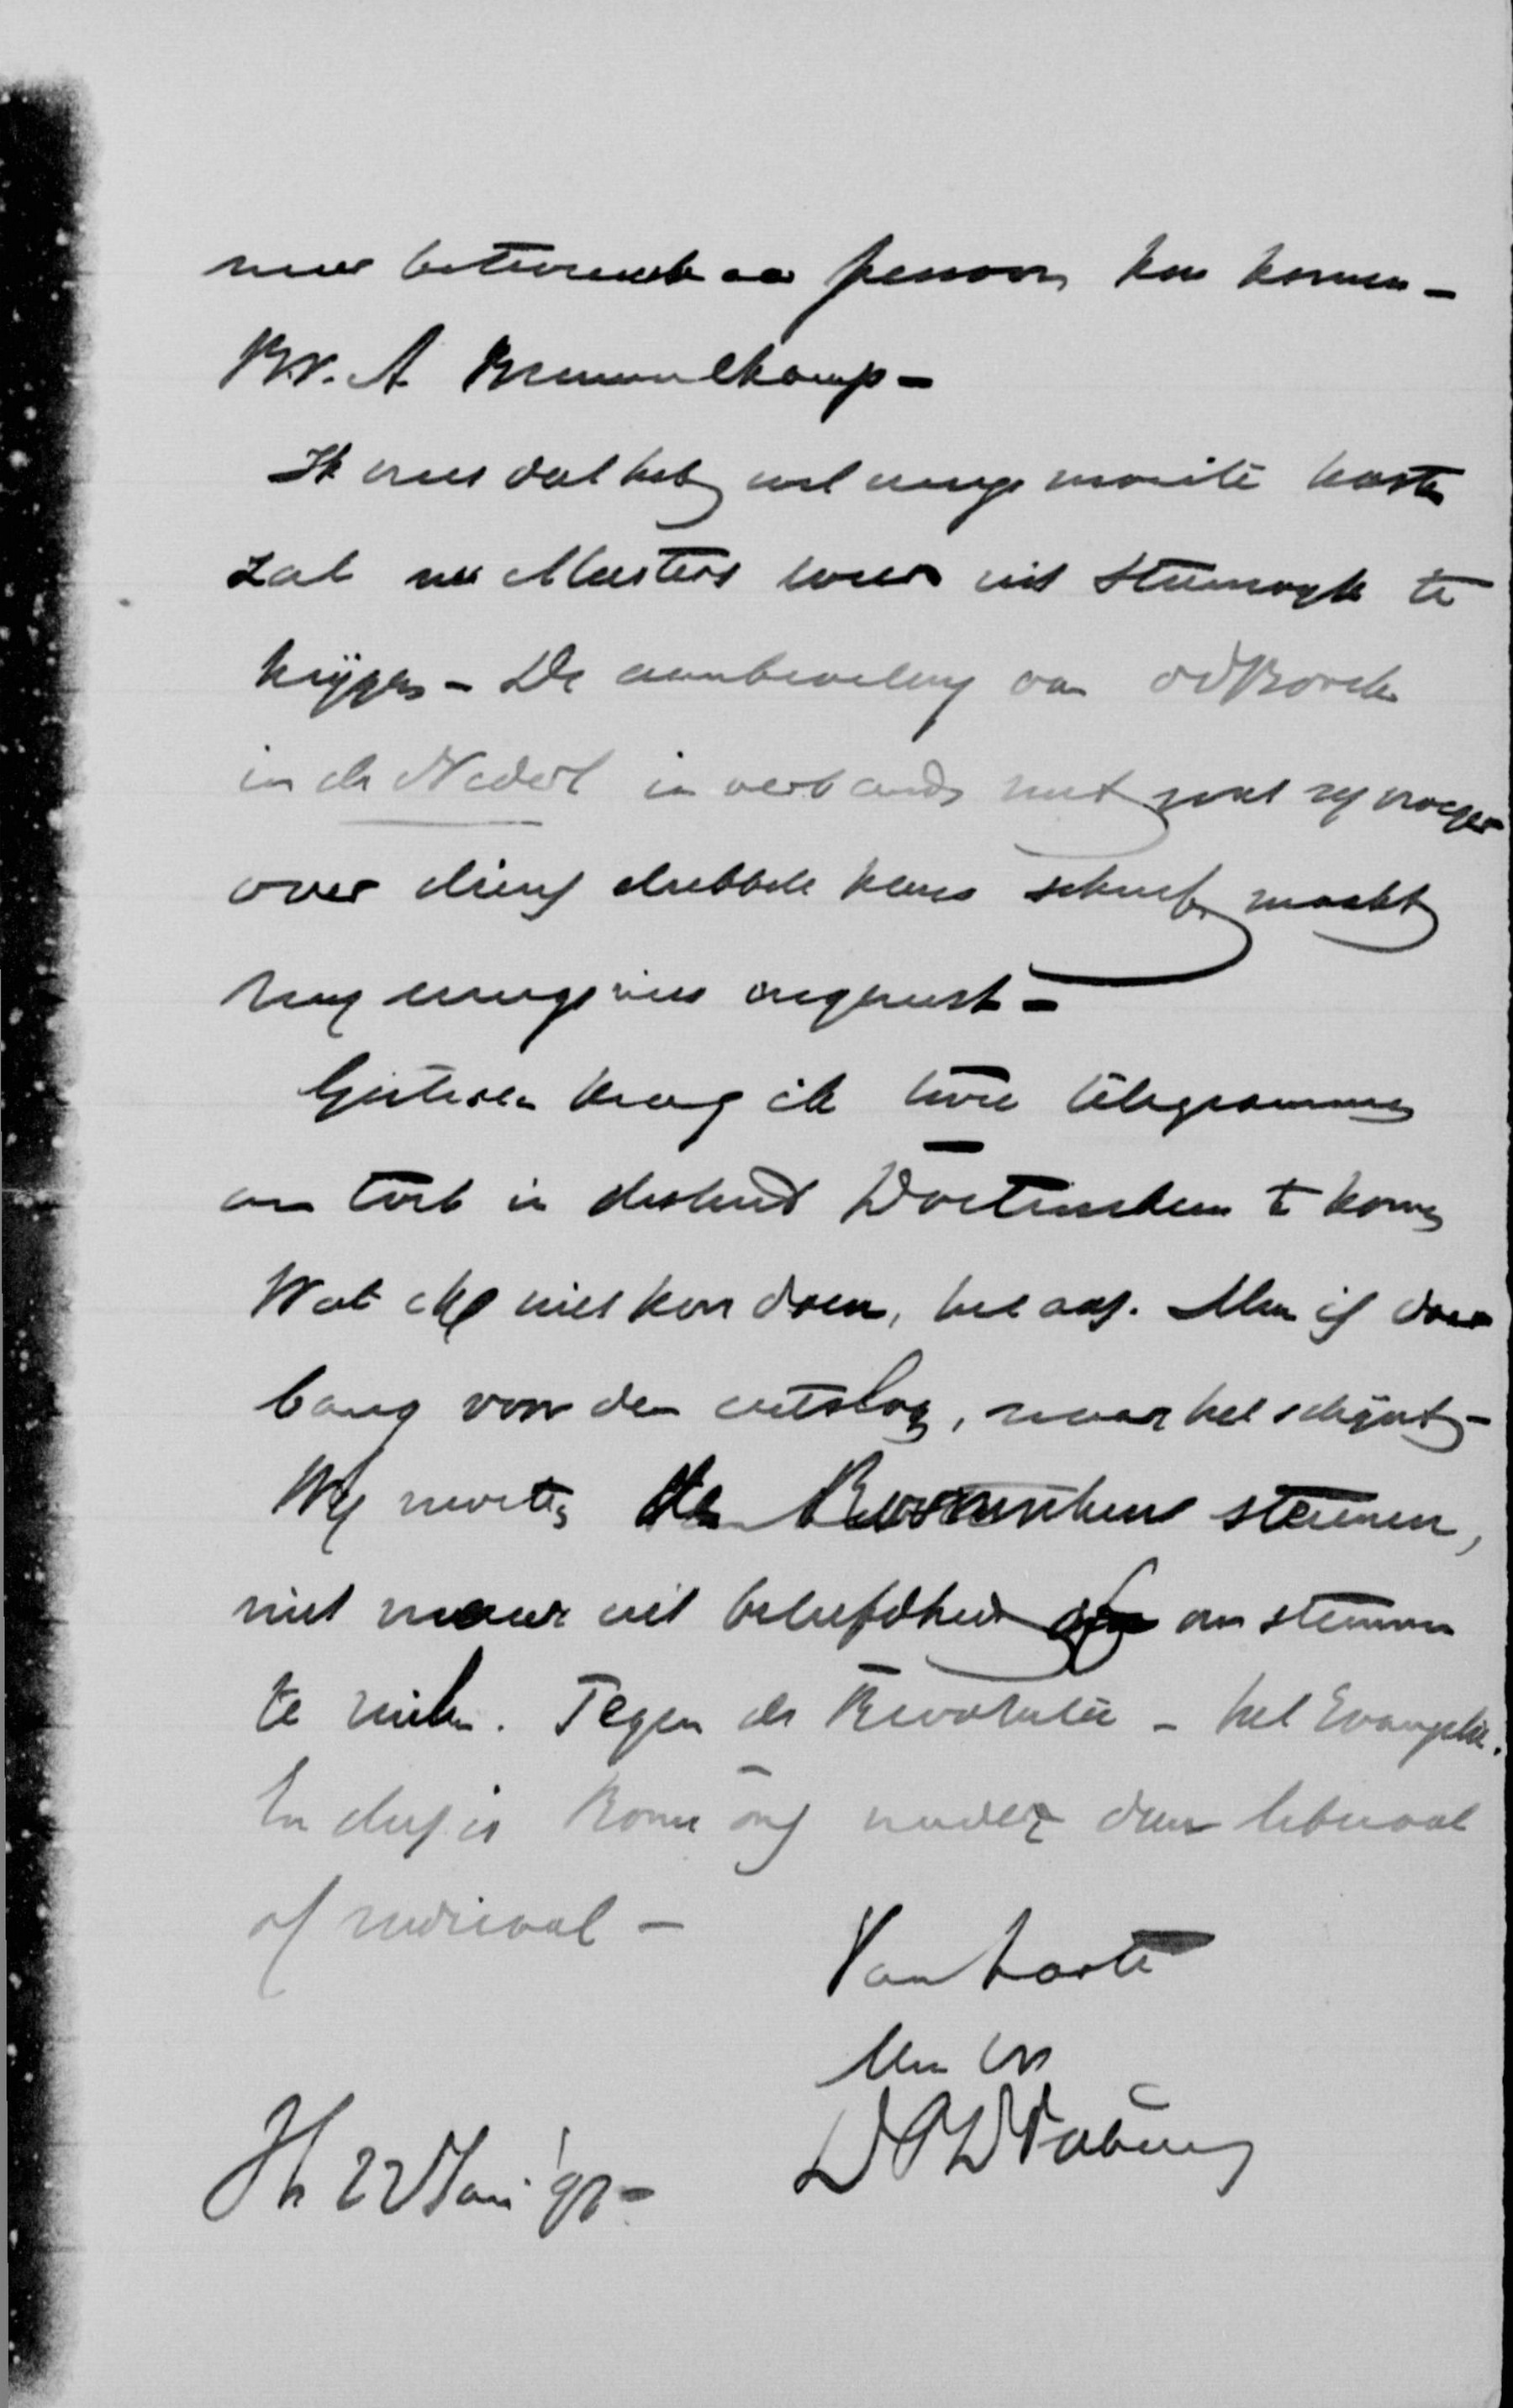 meer betrouwbaar persoon kan komen -
B.v. A Brummelkamp -
Ik vrees dat het wel eenige moeite kosten
zal nu Meesters weer uit Steenwijk te
krijgen - De aanbeveling van vdBorch
in de Nederl in verband met wat zij vroeger
over diens dubbele keus schreef, maakt
mij eenigszins ongerust -
Gisteren kreeg ik twee telegrammen
om toch in district Doetinchem te komen
Wat ik niet kon doen, helaas. Men is daar
bang voor den uitslag, naar het schijnt -
Wij moeten de Roomschen steunen,
niet maar uit beleefdheid om stemmen
te ruilen. Tegen de Revolutie - het Evangelie.
En dus is Rome ons nader dan liberaal
of radicaal -
Van harte
Uw
Hh 22 Juni '97 -